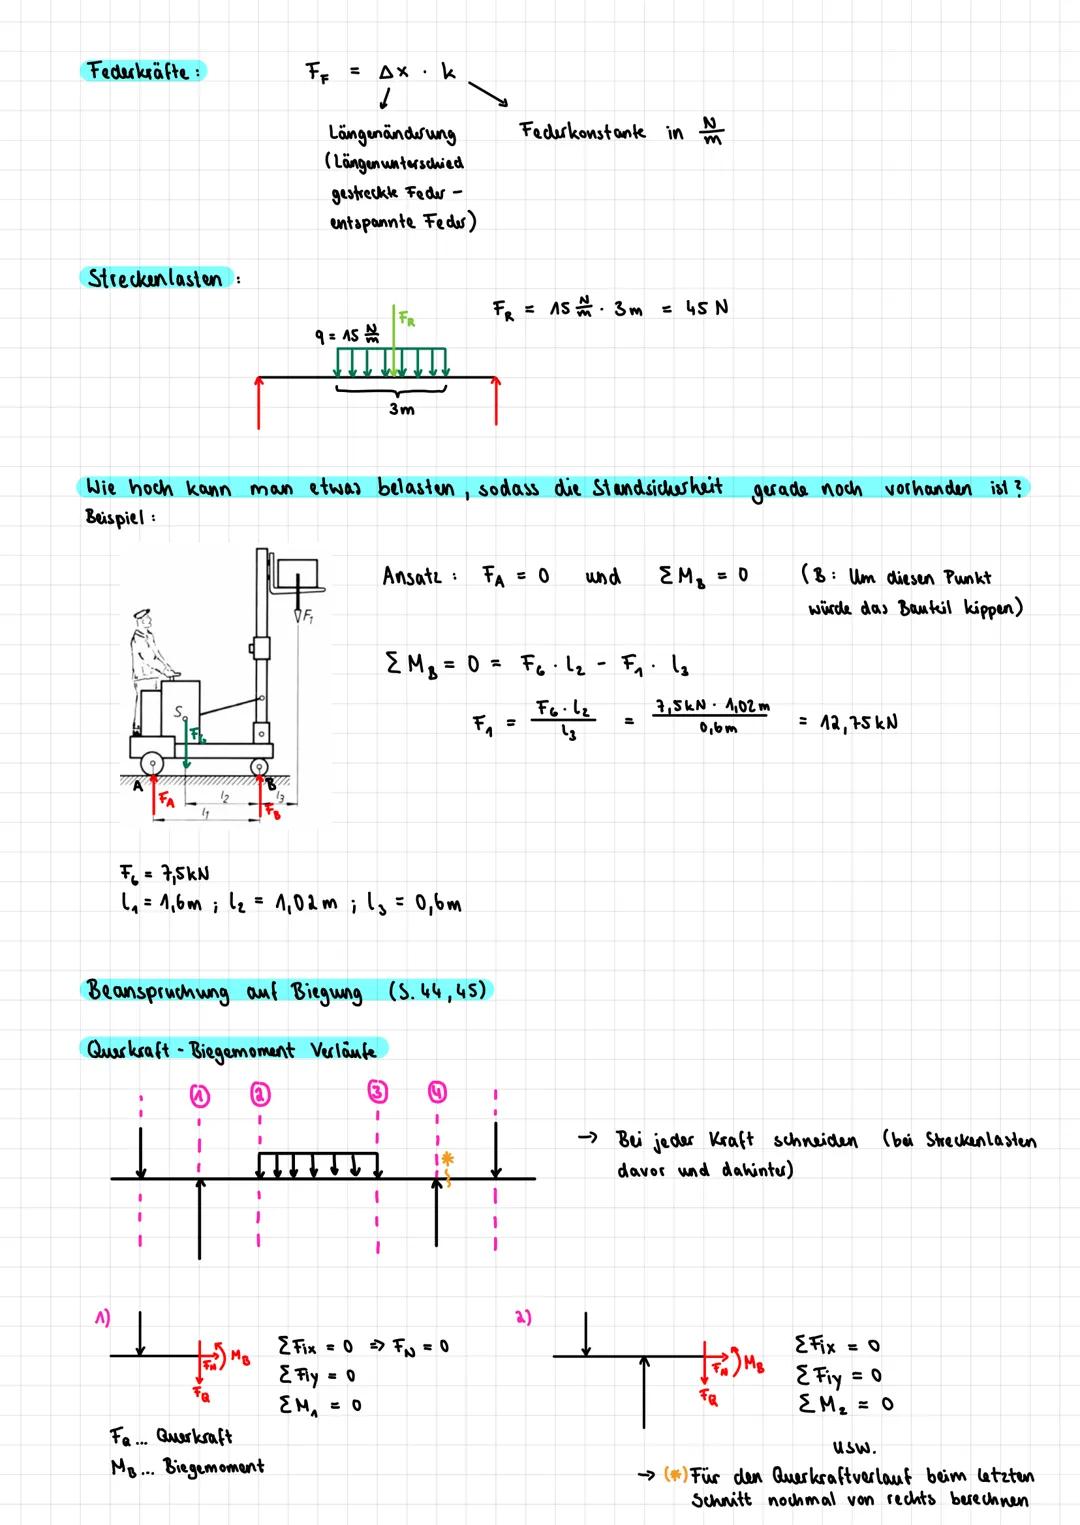 Federkräfte :
F_F = Δx · k
Längenänderung
(Längenunterschied
gestreckte Feder -
entspannte Feder)
Federkonstante in N/m
Streckenlasten :
F_R = 15 N/m · 3m = 45 N
q = 15 N/m
F_R
3m
Wie hoch kann man etwas belasten, sodass die Standsicherheit gerade noch vorhanden ist?
Beispiel :
Ansatz : F_A = 0 und ΣM_B = 0 (B : Um diesen Punkt
würde das Bauteil kippen)
F₁
ΣM_B = 0 = F_G · l₂ - F₁ · l₃
F₁ = F_G · l₂ / l₃ = 7,5kN · 1,02m / 0,6m = 12,75kN
S₀
F_G
A
B
F_A
l₂
l₃
F_B
l₁
F_G = 7,5kN
l₁ = 1,6m ; l₂ = 1,02m ; l₃ = 0,6m
Beanspruchung auf Biegung (S. 44, 45)
Querkraft - Biegemoment Verläufe
① ② ③ ④
*
→ Bei jeder Kraft schneiden (bei Streckenlasten
davor und dahinter)
1)
F_N
M_B
F_Q
ΣFix = 0 => F_N = 0
ΣFiy = 0
ΣM₁ = 0
F_Q ... Querkraft
M_B ... Biegemoment
2)
F_N
M_B
F_Q
ΣFix = 0
ΣFiy = 0
ΣM₂ = 0
usw.
→ (*) Für den Querkraftverlauf beim letzten
Schnitt nochmal von rechts berechnen